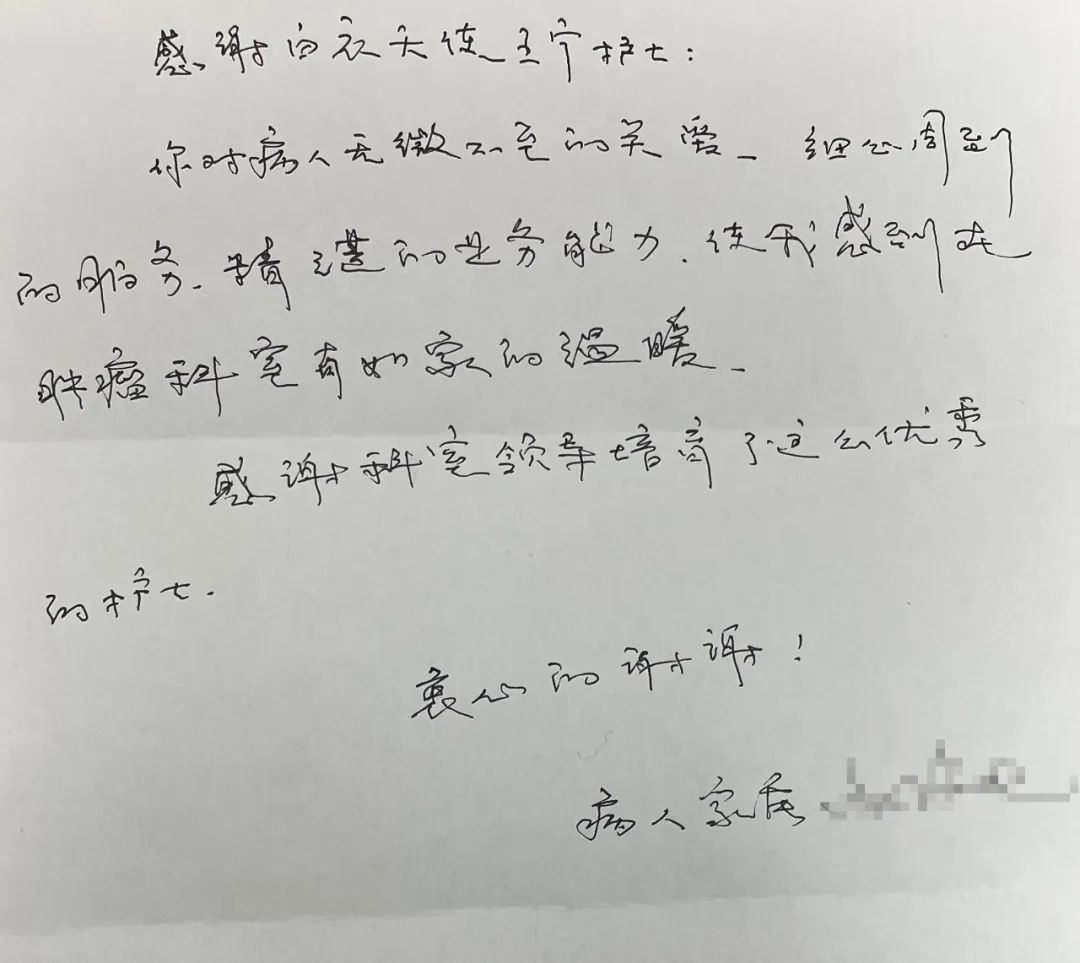 感谢白衣天使王宁护士:
你对病人无微不至的关爱、细心周到
的服务、精湛的业务能力、使我感到在
肿瘤科室有如家的温暖、
感谢科室领导培育了这么优秀
的护士.
衷心的谢谢!
病人家属